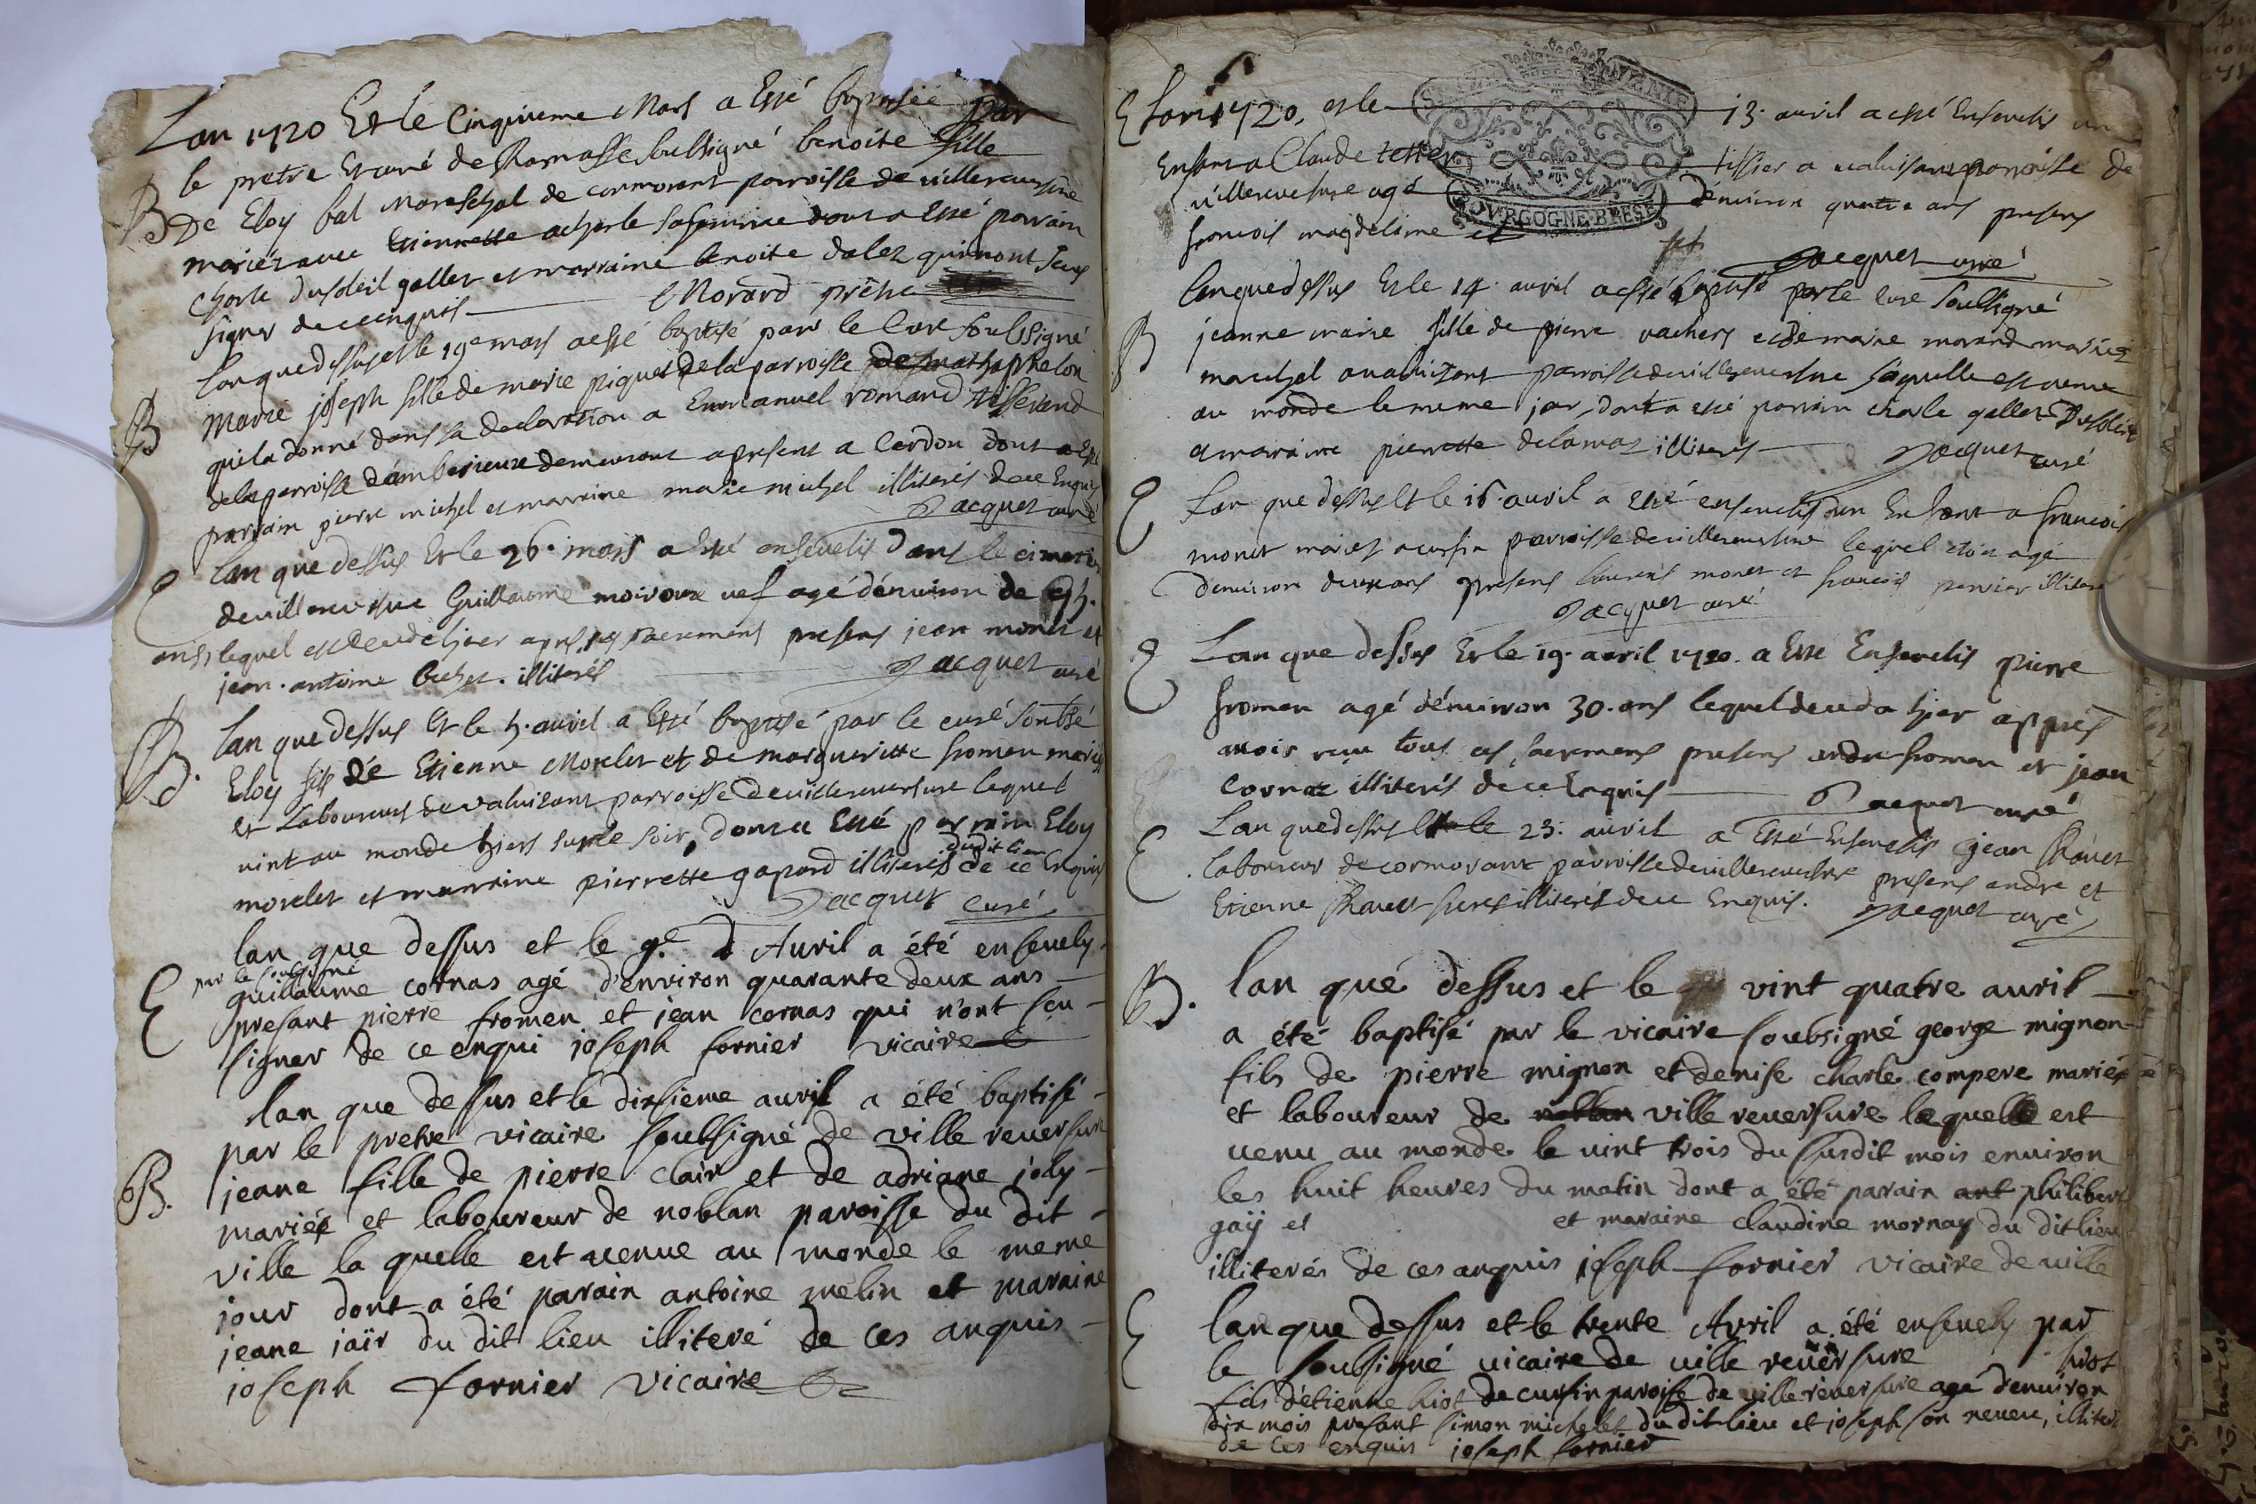 Lan 1720 Et le Cinquieme Mars a Esté baptisée par
le pretre Et curé de Ramasse soubsigné benoite fille
B De Eloy bal mareschal de cormorant parroisse de villereversure
mariez avec Etiennette acharle sa femme dont a Esté parrain
charle dusoleil gallet et marraine benoite dalez qui n'ont sceu
signer de ce enquis Morard prêtre
Lan que dessus et le 19e mars a esté baptisé par le Curé soubssigné
B Marie joseph fille de marie piquet de la parroisse de mathaphelon
qui la donné dans sa declaration a Emmanuel romand tisserand
de la parroisse d'amberieux demeurant apresent a Cerdon dont a esté
parrain pierre michel et marraine marie michel illiterés de ce Enquis
Jacquet curé
Lan que dessus Et le 26. mars a Esté ensevelis dans le cimetiere
E de villereversure Guillaume moiroux vef agé d'environ de
ans, lequel est decedé hier apres ses sacrements presens jean monet et
jean. antoine illiterés Jacquet curé
Lan que dessus Et le 5. avril a Esté baptisé par le curé soubsé
B. Eloy fils de Etienne Morelet et de margueritte fromen mariés
et Laboureurs de valuisant parroisse de villereversure lequel
vint au monde hiers sur le soir, dont a Esté parrain Eloy
dudit lieu
morelet et marraine pierrette gapard illiterés de ce Enquis
Jacquet curé
lan que dessus et le 9.e d Avril a été ensevely
par le soubsigné
E guillaume cornas agé d'environ quarante deux ans
presant pierre fromen et jean cornas qui n'ont seu
signer de ce enqui joseph fornier vicaire
lan que dessus et le dixsieme avril a été baptisé
par le pretre vicaire soubsigné de ville reversure
B. jeane fille de pierre clair et de adriane joly
mariés et laboureur de noblan paroisse du dit
ville la quelle est venue au monde le meme
jour dont a été parain antoine melin et maraine
jeane jaïr du dit lieu illiteré de ces anquis
joseph fornier vicaire
E Lan 1720. et le 13. avril a esté Ensevelis un
Enfant a Claude tissier a valuisant parroisse de
villereversure agé d'environ quatre ans presens
francois magdelaine et
Jacquet curé
Lan que dessus Et le 14. avril a esté baptisé par le Curé soubsigné
B jeanne marie fille de pierre vachers et de marie morand mariés
marechal a valuisant parroisse de villereversure laquelle est venue
au monde le meme jor, dont a esté parrain charle gallet Dusoleil
a maraine pierrette delamas illiterés Jacquet curé
E Lan que dessus Et le 16. avril a Esté ensevelis un Enfant a francois
monet mariés a cursin parroisse de villereversure lequel etoit agé
d'environ deux ans presens laurens monet et francois pervier illiterés
Jacquet curé
E Lan que dessus Et le 19. avril 1720. a Esté Ensevelis pierre
fromen agé d'environ 30. ans lequel deceda hier appres
avoir receu tous ces sacremens presens andre fromen et jean
Cornaz illiterés de ce Enquis Jacquet curé
Lan que dessus Et le 23. avril a Esté Ensevelis jean
E . laboureur de cormorant parroisse de villereversure presens andre et
Etienne freres illiterés de ce Enquis. Jacquet curé
B. lan qué dessus et le vint quatre avril
a été baptisé par le vicaire soubsigné george mignon
fils de pierre mignon et denise charle compere mariés
et laboureur de ville reversure lequelle est
venu au monde le vint trois du susdit mois environ
les huit heures du matin dont a été parain philibert
gaÿ et et maraine claudine mornay du dit lieu
illiterés de ces anquis joseph fornier vicaire de ville
E lan que dessus et le trente Avril a été ensevely par
le soubsigné vicaire de ville reversure hiot
fils d'etienne hiot de cursin paroise de ville reversure agé d'environ
dix mois presant simon michelet du dit lieu et joseph son neveu, illiteré
de ces enquis joseph fornier
BOURGOGNE·BRESSE